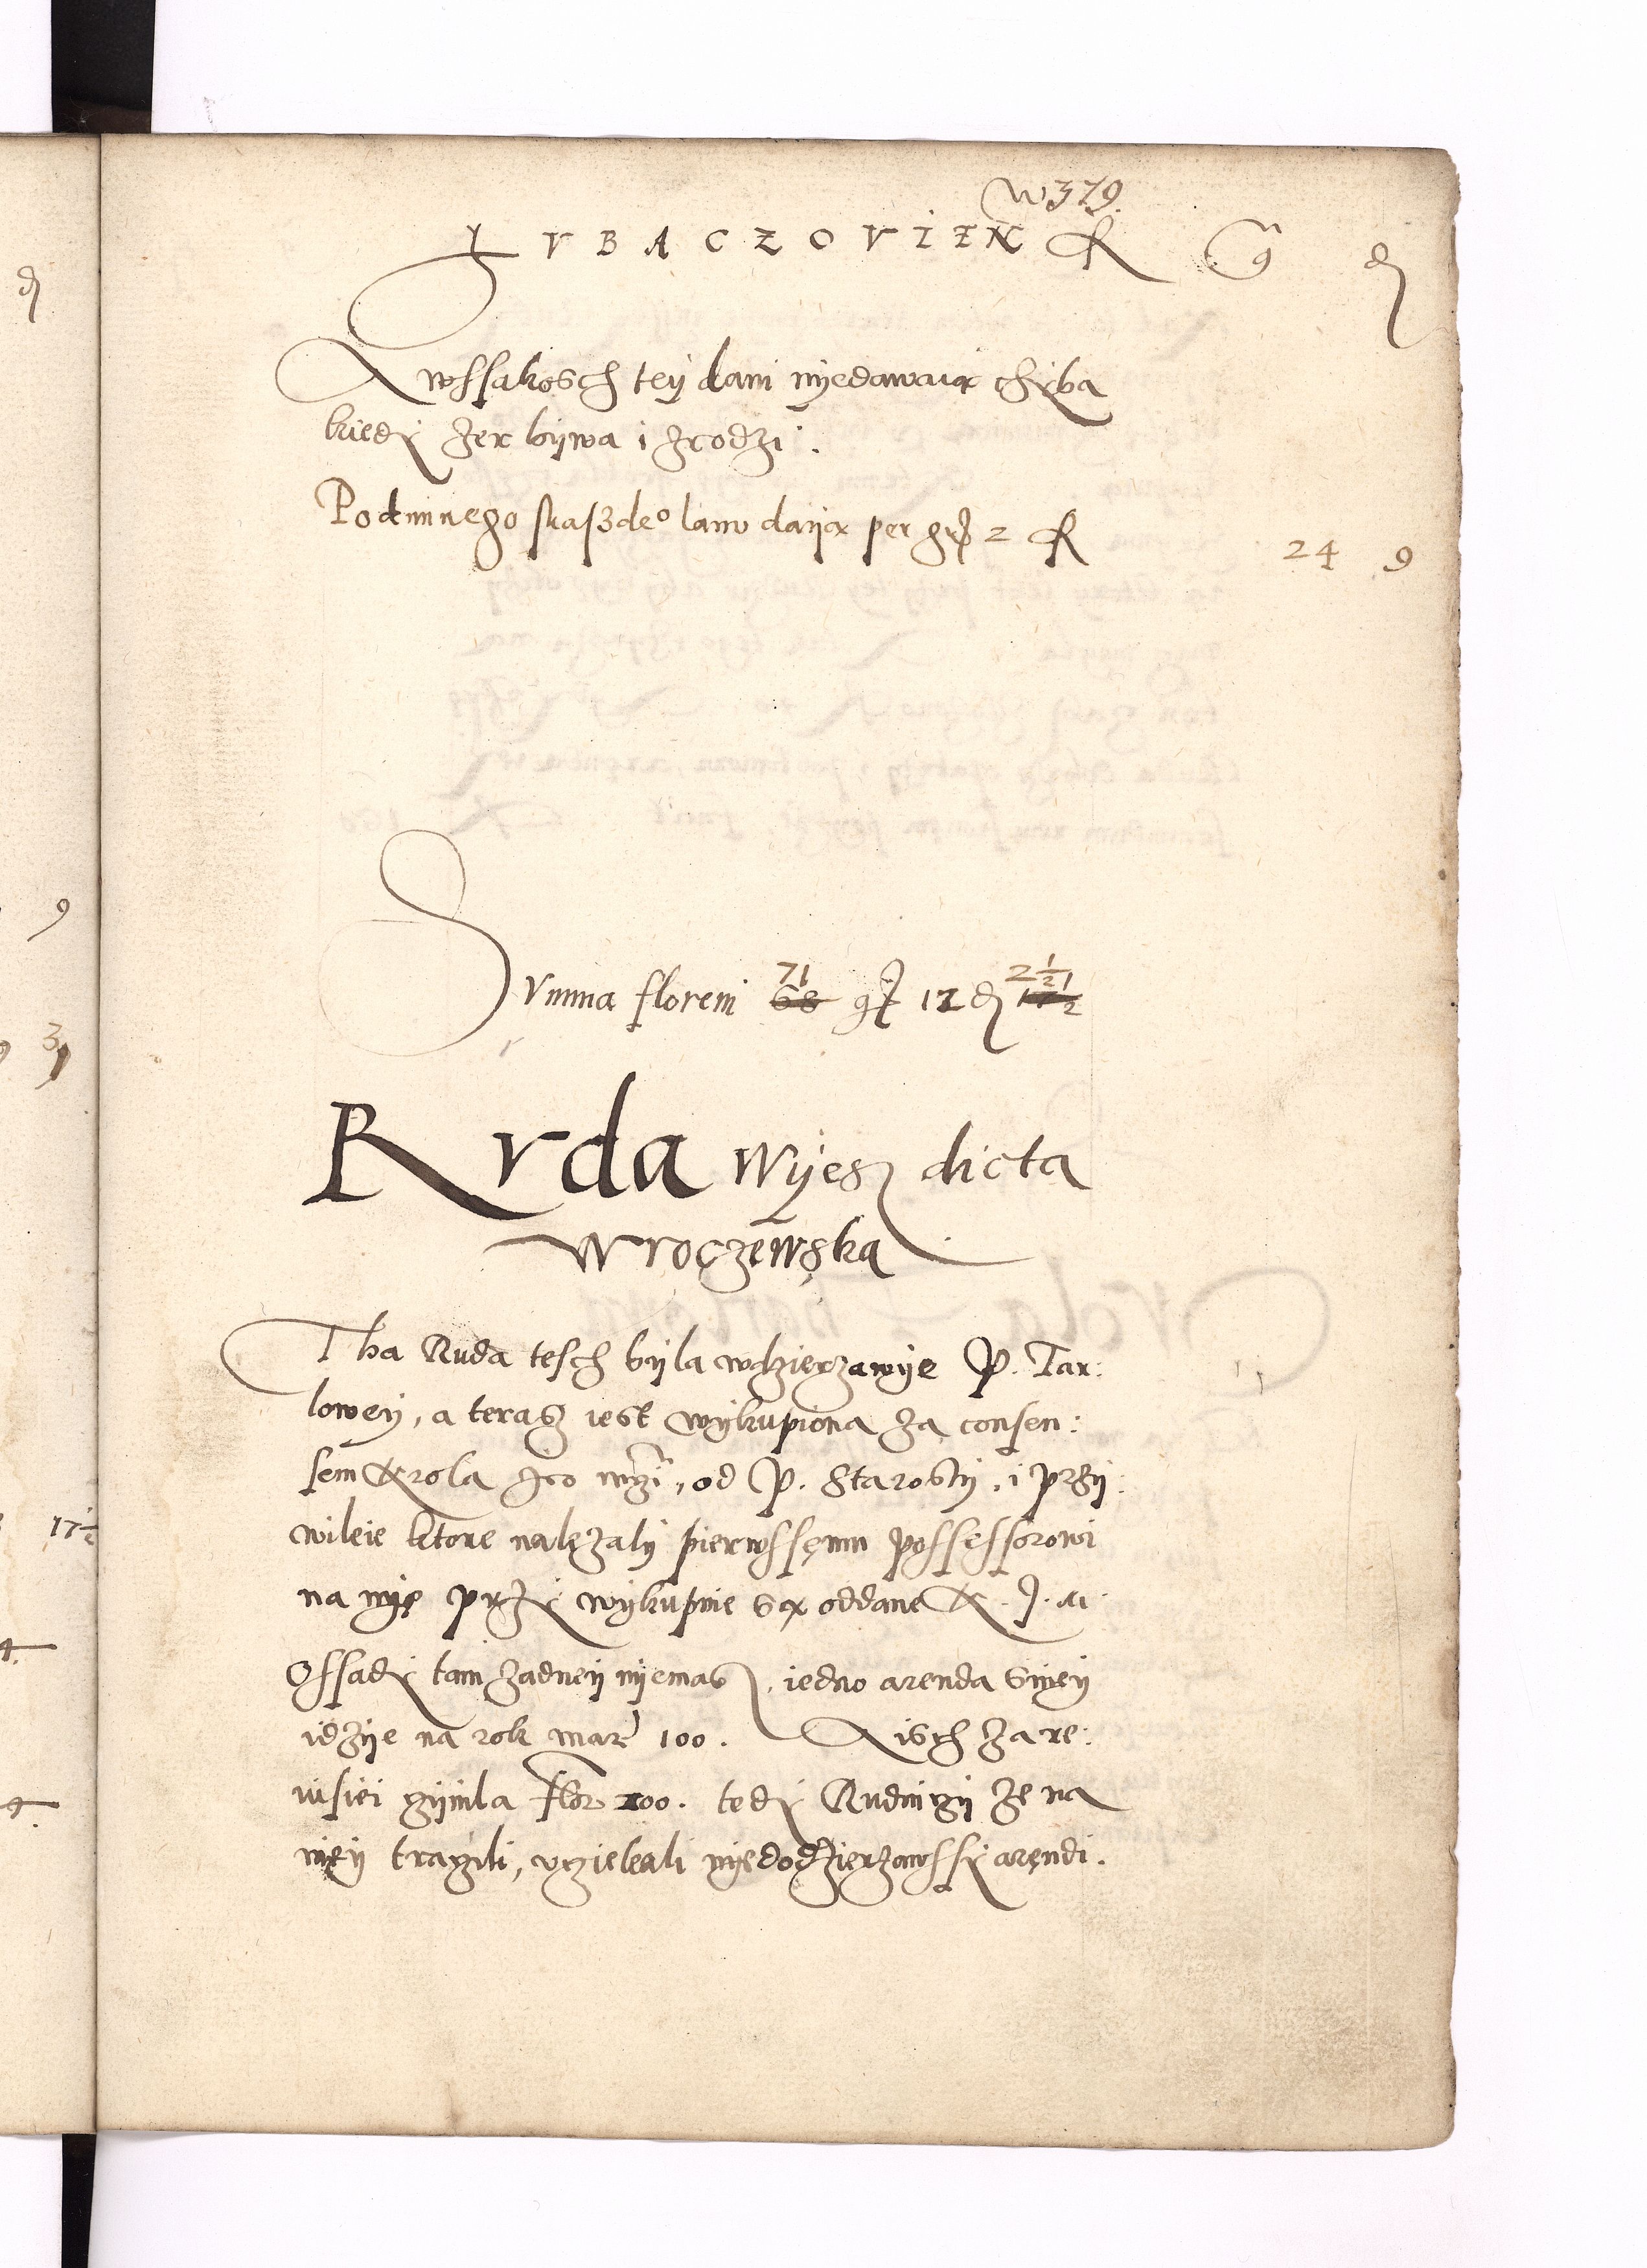 w 379.
LVBACZOVIEN
A wssakosch tey dani nyedawaią chyba
kiedy żer bywa i zrodzi.
Podimnego skaszdeo lanu dayą per gr 2
24 9
Summa floreni 71 68 gr 12 d 2½ 17½
Rvda Wyesz dicta
Wroczewska
Tha Ruda tesch była wdzierzawye P. Tar:
lowey, a terasz iest wykupiona za consen:
sem Krola Jeo mczi, od P. Starosty, i przy:
wileie ktore należaly pierwssemu possessorowi
na nyę przy wykupnie są oddane K. J. M.
Ossady tam żadney nyemasz, iedno arenda snyey
idzye na rok mar 100. A isch za re:
uisiei zginęla flor 100. tedy Rudniczy że na
nyey traczili, vcziekali nyedodzierzawssy arendi.
17½